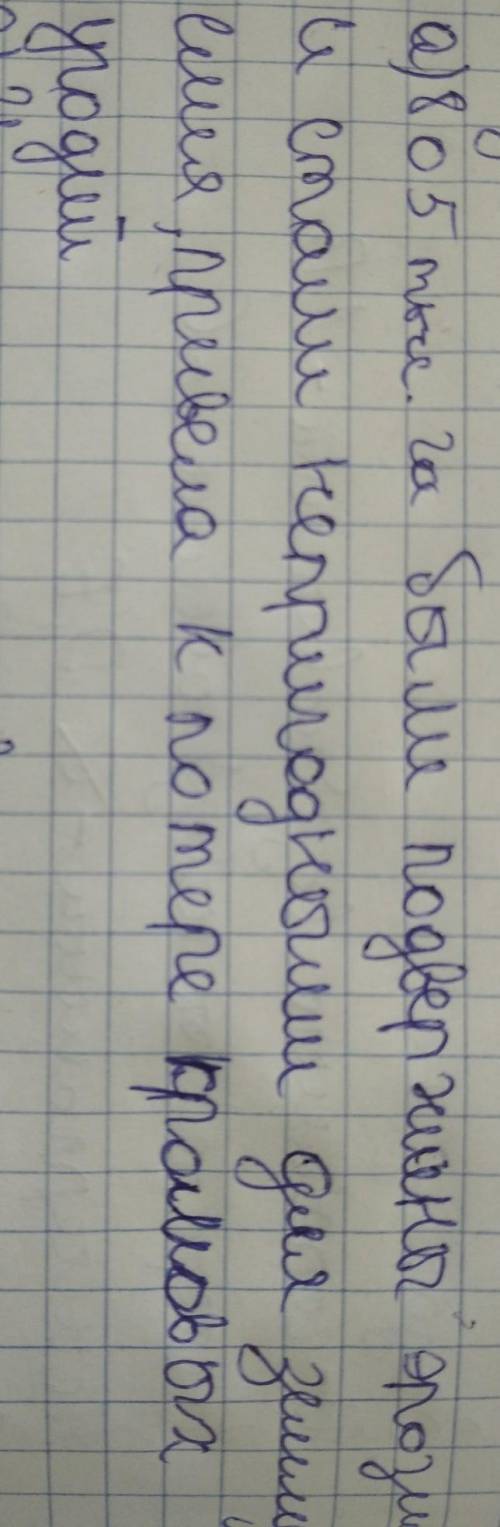 а) 805 тыс. га были подвержены эрози
и стали непригодными для земле
делия, привела к потере кормовых
угодий